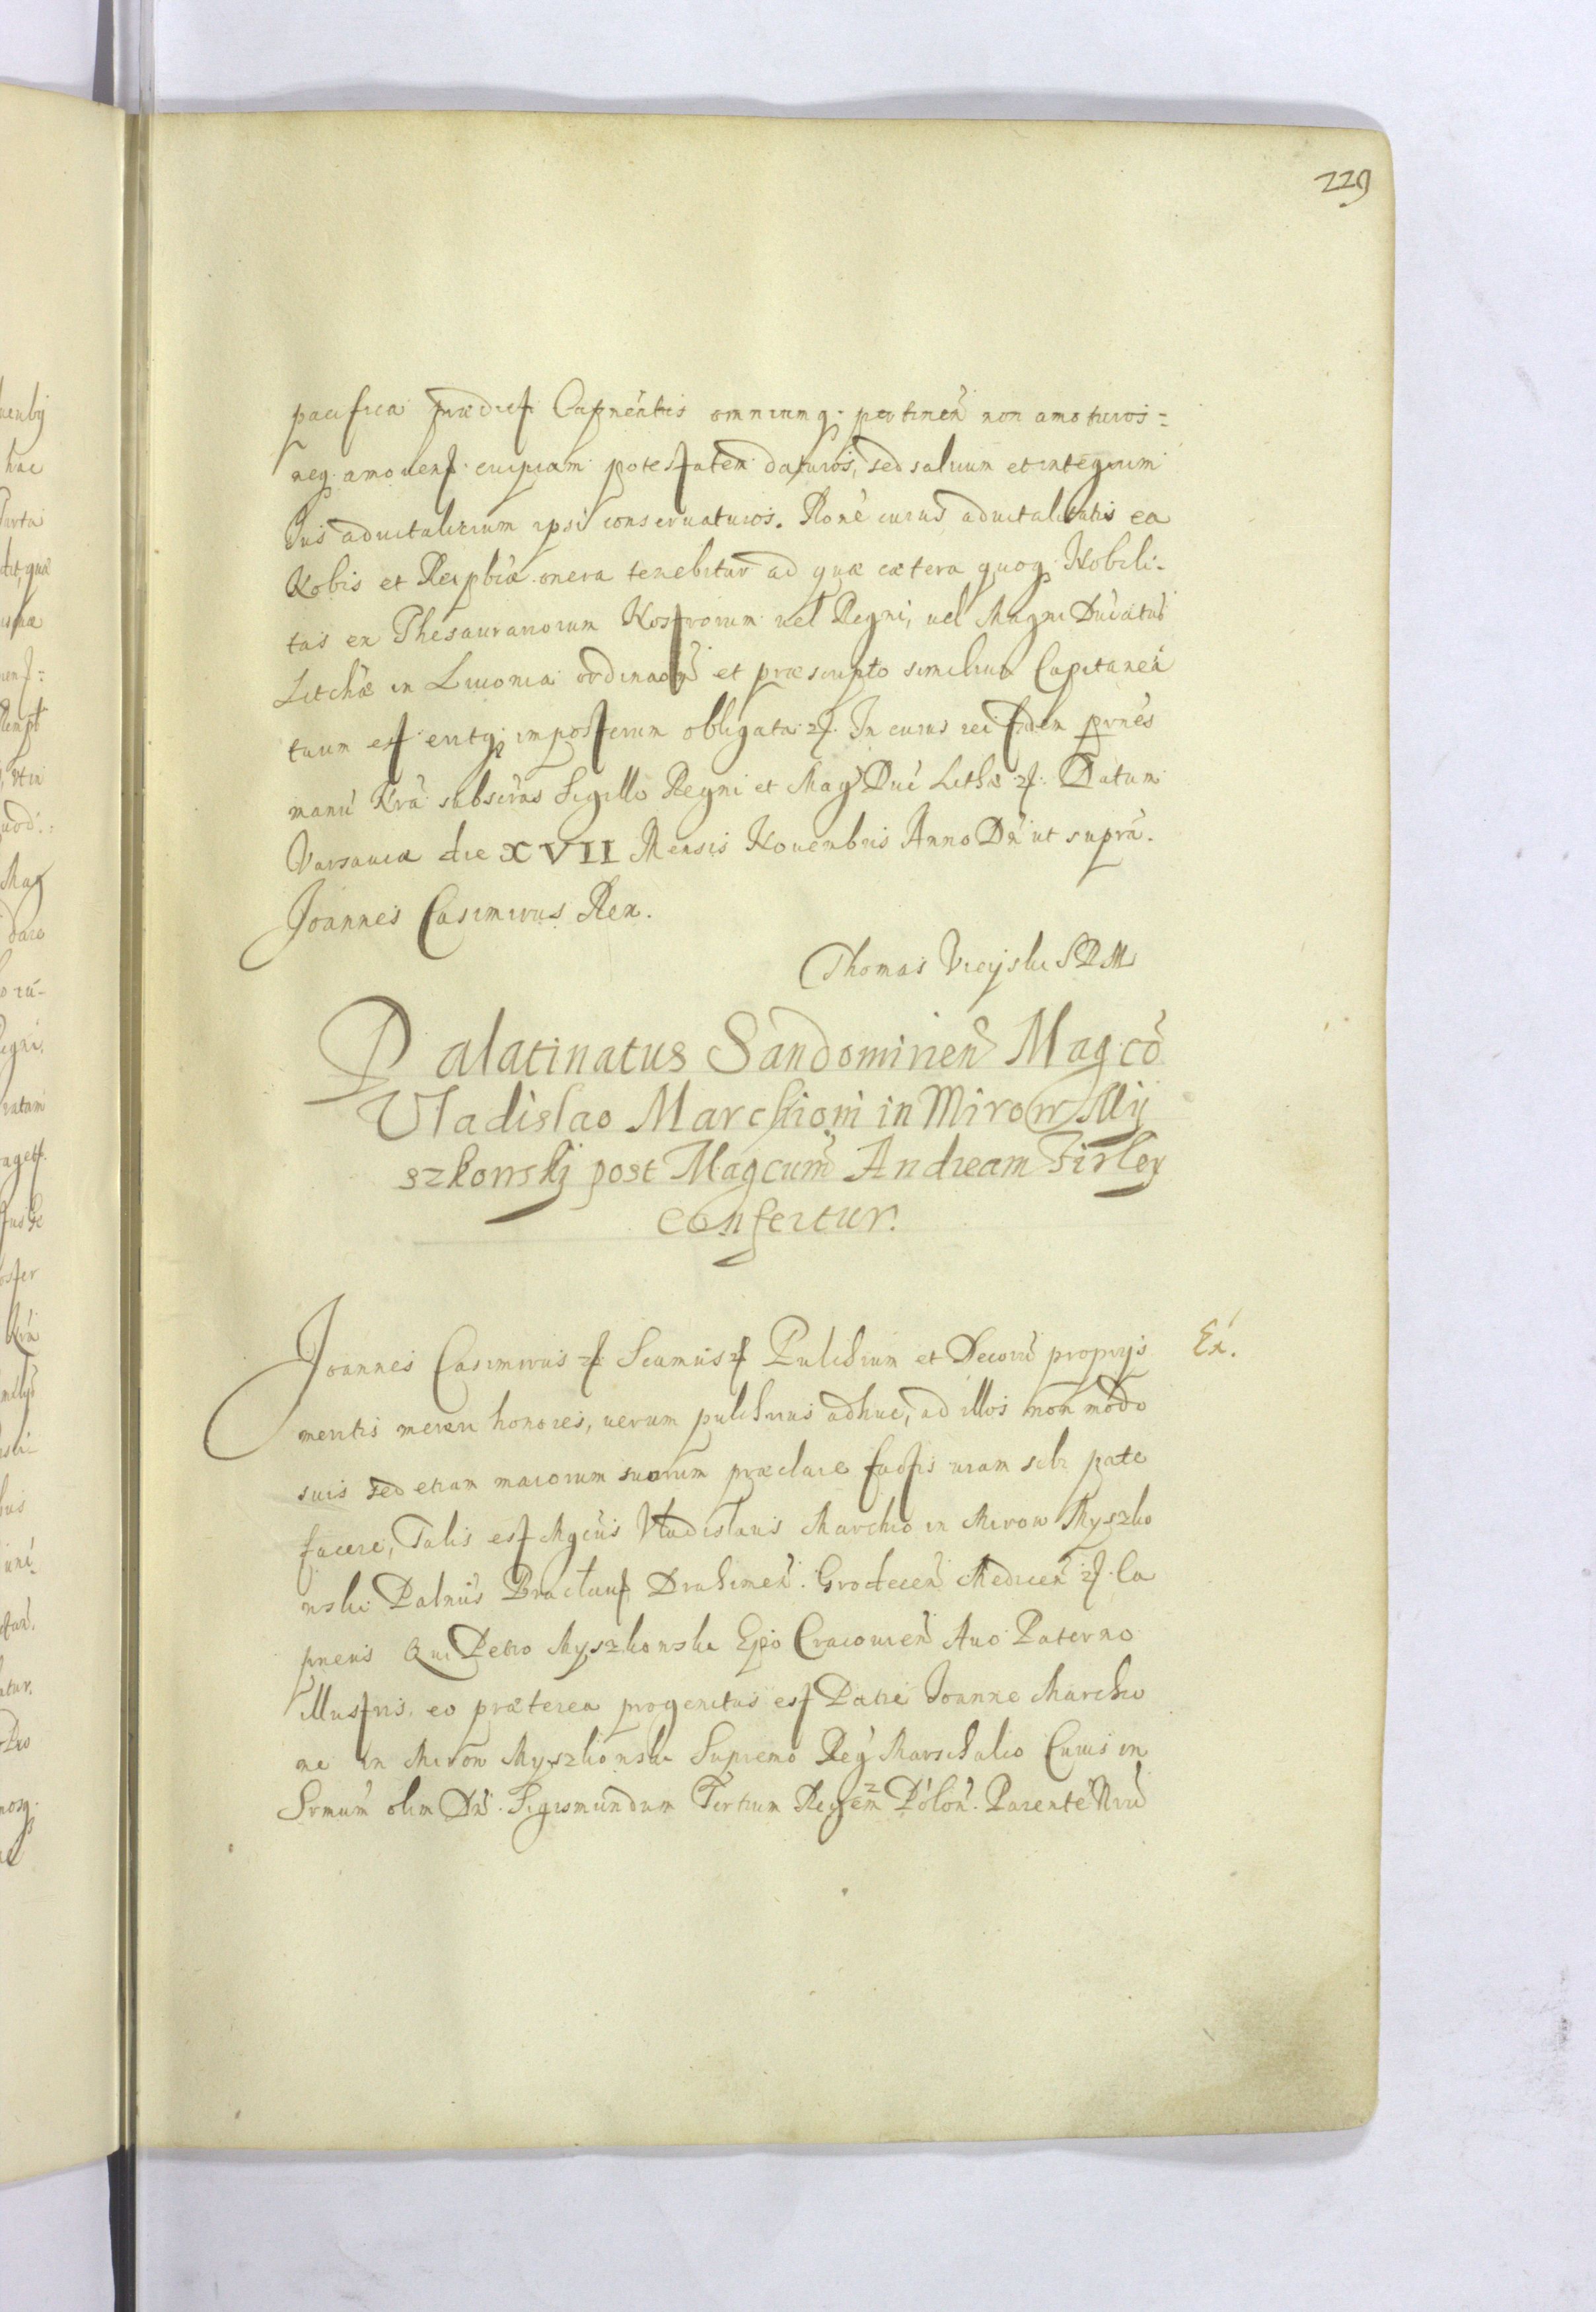 229
pacifica prædict Capneatus omniumq. pertinen non amoturos
neq. amouen cuipiam potestatem daturos, sed saluum et integrum
Jus aduitalitium ipsi conseruaturos. Rone cuius aduitalitatis ea
Nobis et Reipbcæ onera tenebitur ad quæ cætera quoq. Nobili-
tas ex Thesaurariorum Nostrorum uel Regni, uel Magni Ducatus
Litchæ in Liuonia ordinaoñ et præscripto similium Capitanea
tuum est eritq. imposterum obligata. In cuius rei fidem prnes
manu Nra subscras Sigillo Regni et Mag Duc Lithæ. Datum
Varsauiæ die XVII Mensis Nouembris Anno Dni ut supra.
Joannes Casimirus Rex.
Thomas Vieyski SRM
Palatinatus Sandomirien Magco
Vladislao Marchioni in Mirow My
szkowski post Magcum Andream Firley
confertur.
Joannes Casimirus Scamus Pulchrum et Decoru proprys
Ex.
meritis mereri honores, uerum pulchrius adhuc, ad illos non modo
suis sed etiam maiorum suorum præclare factis uiam sibi pate
facere, Talis est Mgcus Vladislaus Marchio in Mirow Myszko
wski Palnus Braclaw Drahimen. Grodecen Medicen Ca
pneus Qui Petro Myszkowski Epo Cracouien Auo Paterno
illustris, eo præterea progenitus est Patre Joanne Marchio
ne in Mirow Myszkowski Supremo Reg Marschalco Cuius in
Srmum olim Dn. Sigismundum Tertium Regem Polon. Parente Nrū